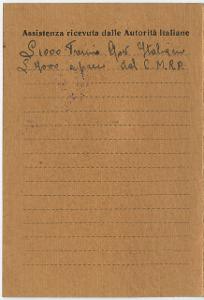 Assistenza ricevuta dalle Autorità Italiane
£ 1000 Gov. Italiano
£ 4000 dal C. M. R. P.